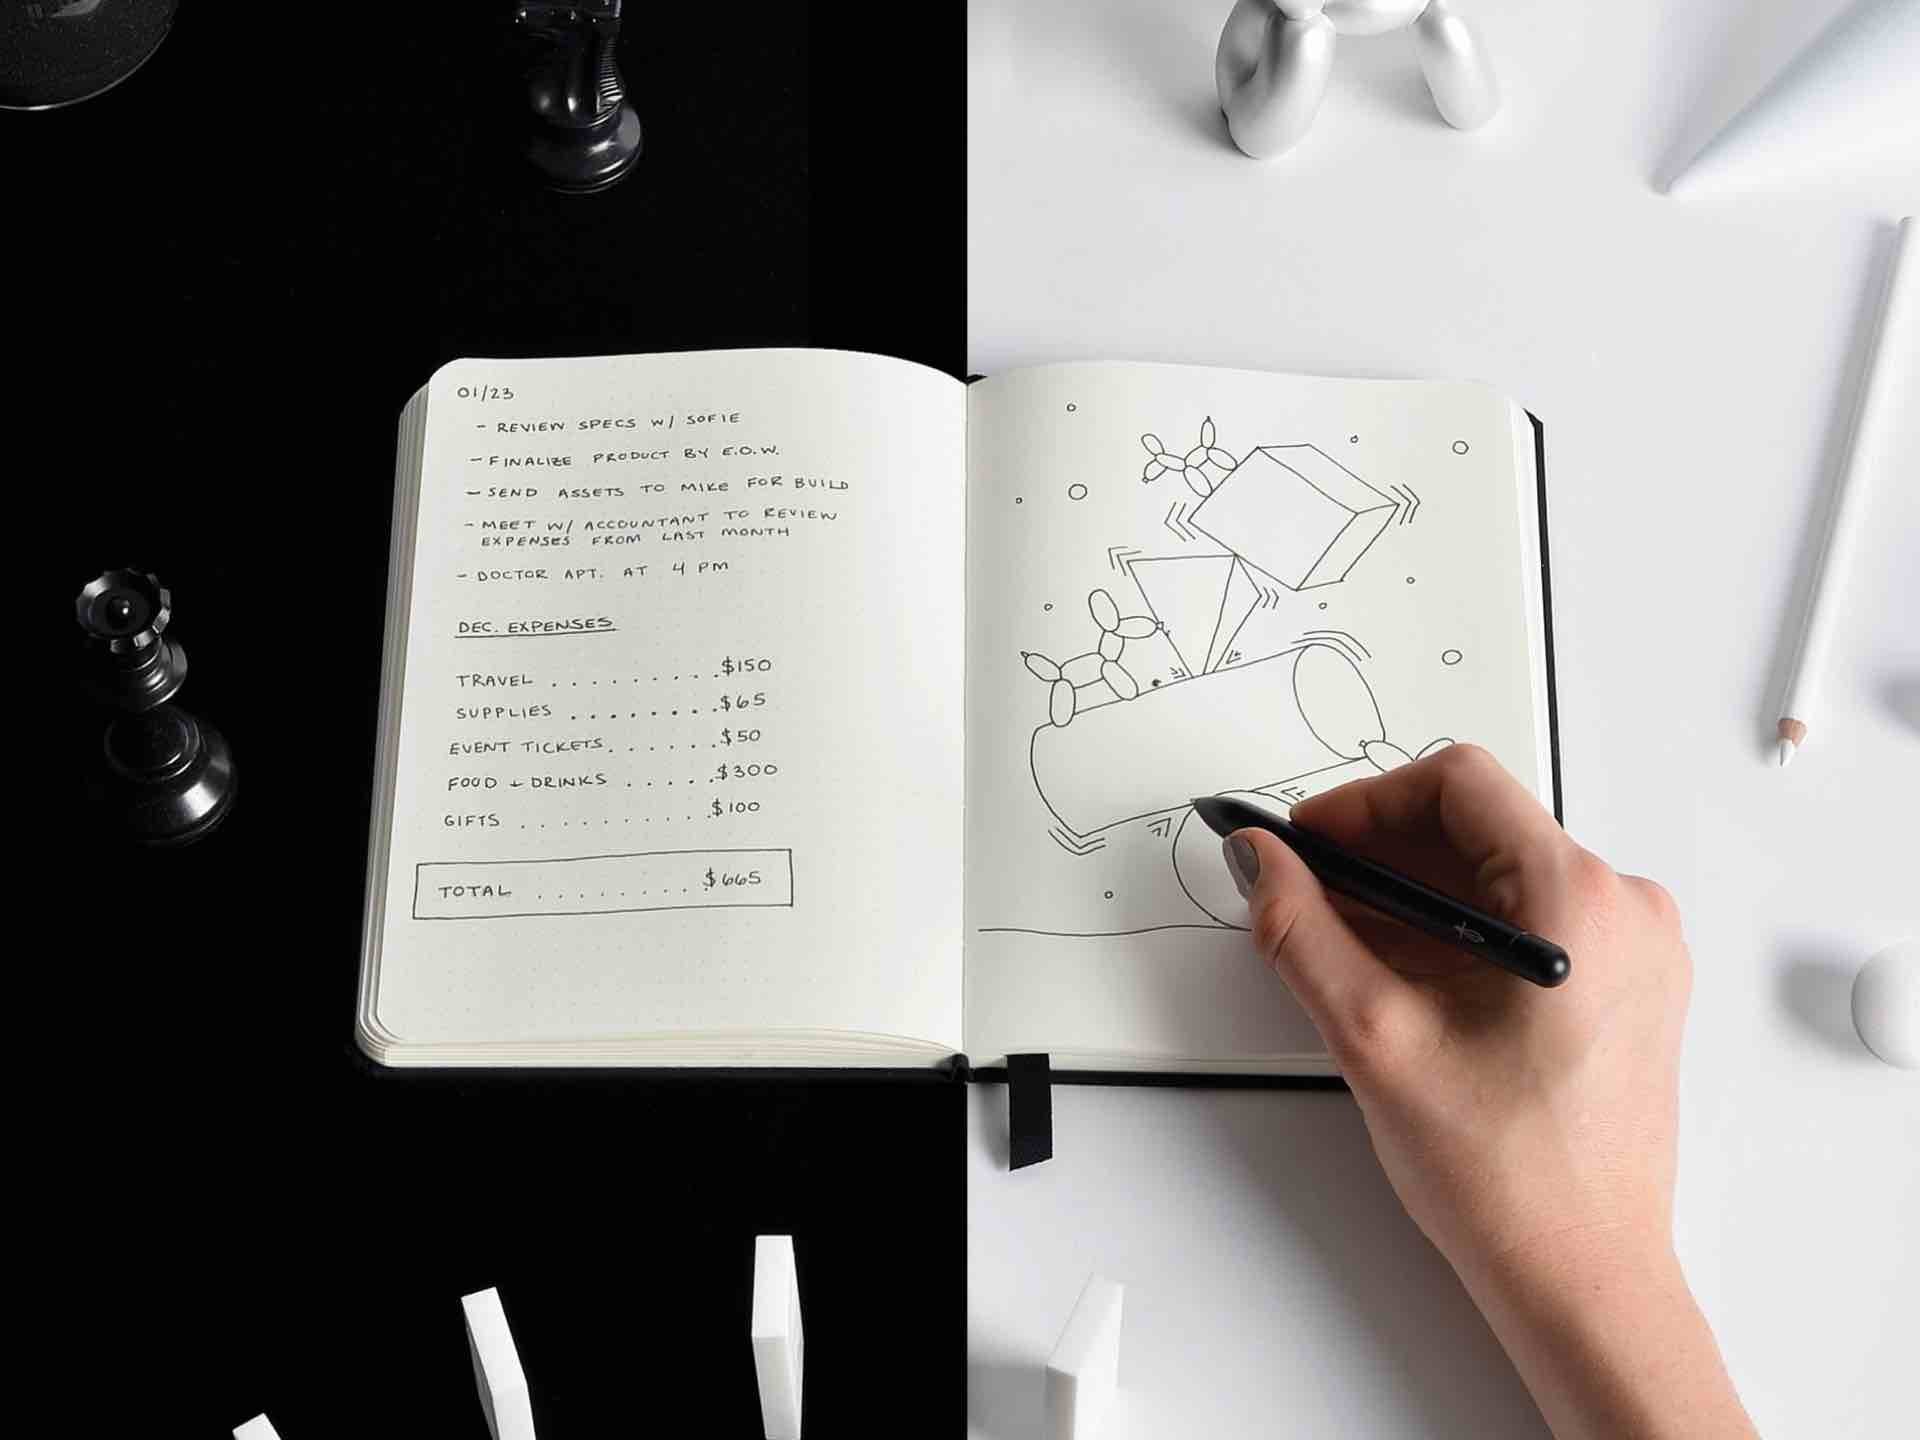 01/23
- REVIEW SPECS W/ SOFIE
- FINALIZE PRODUCT BY E.O.W.
- SEND ASSETS TO MIKE FOR BUILD
- MEET W/ ACCOUNTANT TO REVIEW
EXPENSES FROM LAST MONTH
- DOCTOR APT. AT 4 PM
DEC. EXPENSES
TRAVEL . . . . . . . . . . $150
SUPPLIES . . . . . . . . $65
EVENT TICKETS . . . . . . $50
FOOD + DRINKS . . . . . $300
GIFTS . . . . . . . . . . $100
TOTAL . . . . . . . . $665